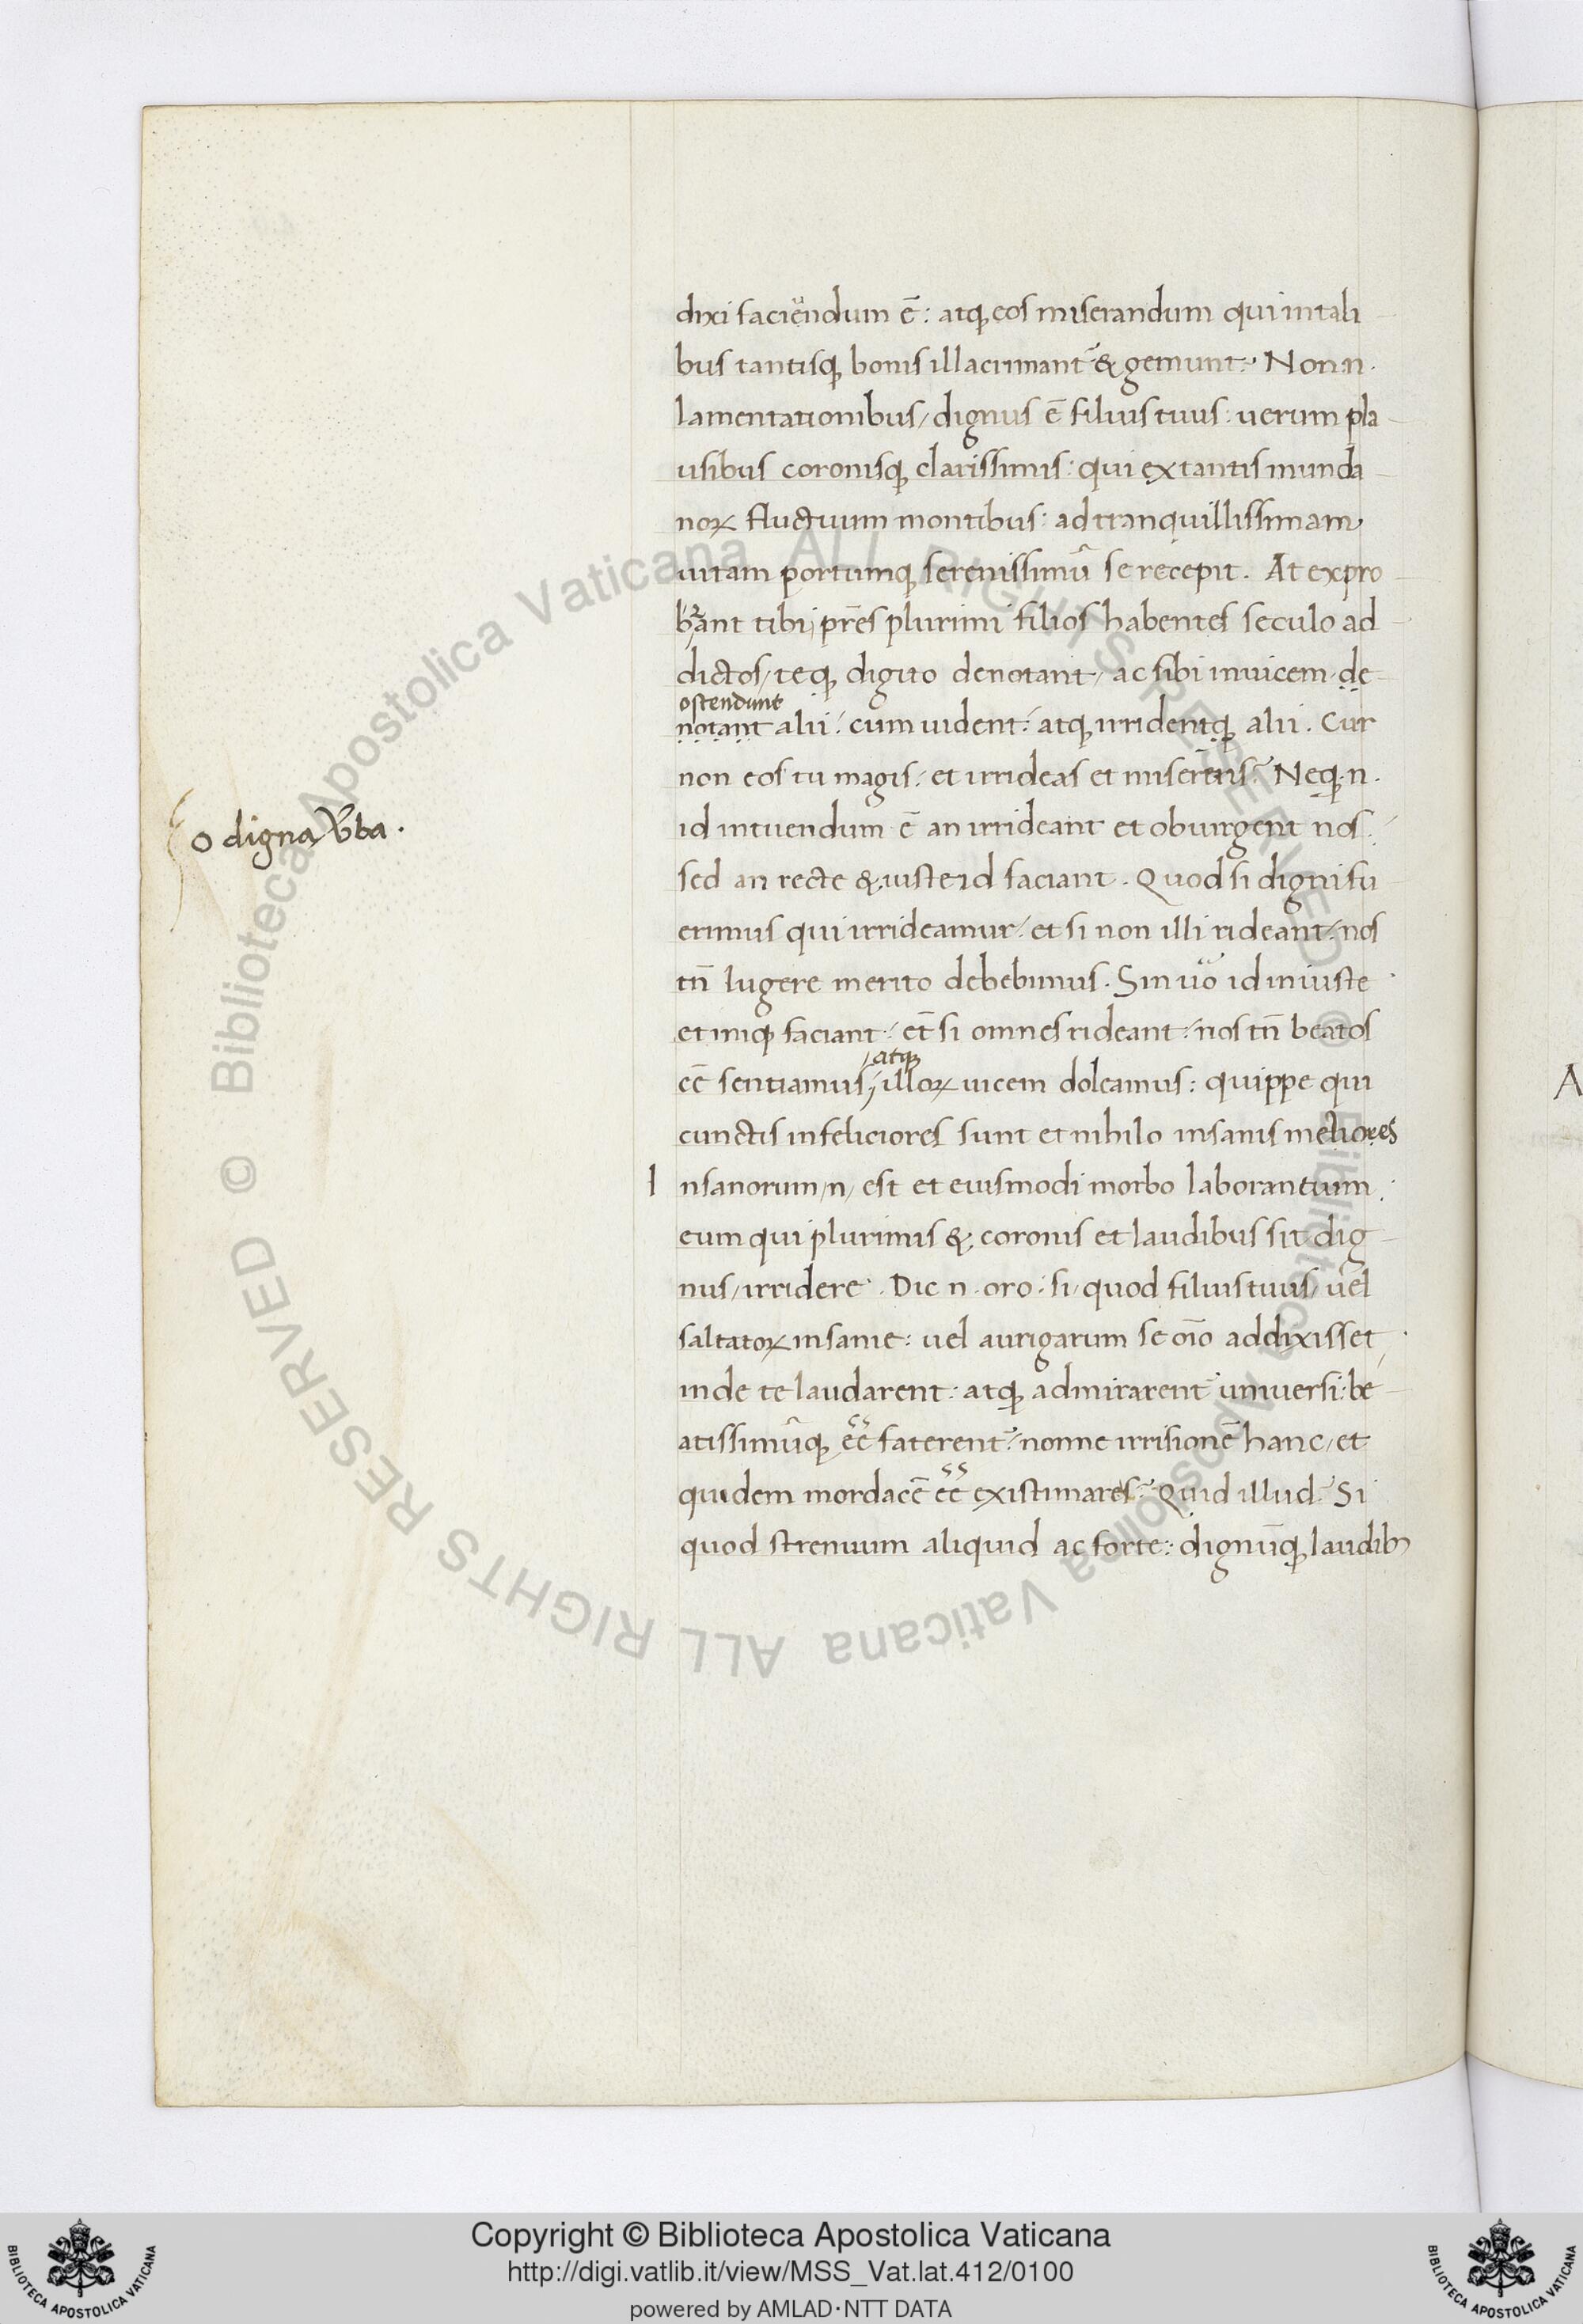 dixi faciendum ē: atq̨ eos miserandum qui in tali
bus tantisq̨ bonis illacrimant᷑ & gemunt: Non .n.
lamentationibus/ dignus ē filius tuus: uerum pla
usibus coronisq̨ clarissimis: qui ex tantis munda
noꝝ fluctuum montibus: ad tranquillissimam
uitam portumq̨ serenissimū se recepit. At expro
brant tibi/ pr̄es plurimi filios habentes seculo ad
dictos/ teq̨ digito denotant/ ac sibi inuicem de
ostendunt
notant alii: cum uident: atq̨ irridentq̨ alii. Cur
non eos tu magis/ et irrideas et misereris? Neq̨ .n.
id intuendum ē an irrideant et obiurgent nos:
o digna v̄ba.
sed an recte & iuste id faciant. Quod si digni fu
erimus qui irrideamur: et si non illi rideant: nos
tn̄ lugere merito debebimus. Sin uo᷑ id iniuste
et iniq̨ faciant: et̄ si omnes rideant: nos tn̄ beatos
atq̨
eē sentiamus/ illoꝝ uicem doleamus: quippe qui
cunctis infeliciores sunt et nihilo insanis meliores
I nsanorum/n/ est et eiusmodi morbo laborantium:
eum qui plurimis & coronis et laudibus sit dig
nus/ irridere. Dic .n. oro: si/ quod filius tuus/ uel
saltatoꝝ insanie: uel aurigarum se oīo addixisset
inde te laudarent: atq̨ admirarent᷑ uniuersi: be
atissimūq̨ eē faterent᷑: nonne irrisionē hanc/ et
quidem mordacē eē existimares? Quid illud? Si
quod strenuum aliquid ac forte: dignūq̨ laudibꝫ
A
Copyright © Biblioteca Apostolica Vaticana
http://digi.vatlib.it/view/MSS_Vat.lat.412/0100
powered by AMLAD·NTT DATA
BIBLIOTECA APOSTOLICA VATICANA
BIBLIOTECA APOSTOLICA VATICANA
© Biblioteca Apostolica Vaticana ALL RIGHTS RESERVED © Biblioteca Apostolica Vaticana ALL RIGHTS RESERVED